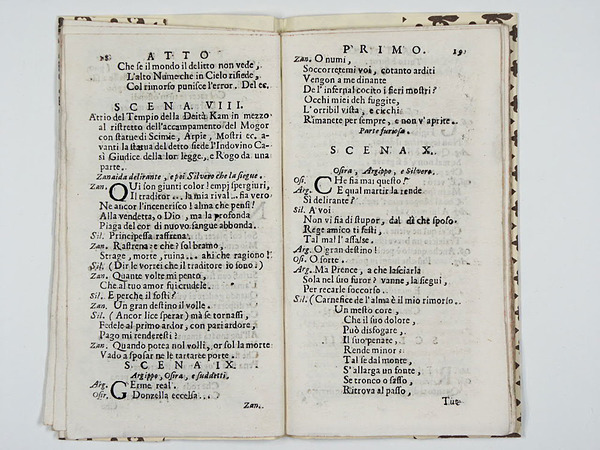 18 ATTO
Che se il mondo il delitto non vede,
L'alto Nume che in Cielo risiede,
Col rimorso punisce l'error. Del ec.
SCENA VIII.
Atrio del Tempio della Deità Kam in mezzo
al ristretto dell'accampamento del Mogor
con statue di Scimie, Arpie, Mostri ec. a-
vanti la statua del detto siede l'Indovino Ca-
sì Giudice della lor legge, e Rogo da una
parte.
Zanaida delirante, e poi Silvero che la siegue.
Zan. QUi son giunti color? empj spergiuri,
Il traditor... la mia rival... fia vero
Ne ancor l'incenerisco! alma che pensi!
Alla vendetta, o Dio, ma la profonda
Piaga del cor di nuovo sangue abbonda.
Sil. Principessa raffrena.
Zan. Raffrena? e che? sol bramo,
Strage, morte, ruina... ahi che ragiono!
Sil. (Dir le vorrei che il traditore io sono!)
Zan. Quante volte mi pento,
Che al tuo amor fui crudele.
Sil. E perche il fosti?
Zan. Un gran destino il volle.
Sil. (Ancor lice sperar) mà se tornassi,
Fedele al primo ardor, con pari ardore,
Pago mi renderesti?
Zan. Quando potea nol volli, or sol la morte
Vado a sposar ne le tartaree porte.
SCENA IX.
Argippo, Osira, e suddetti,
Arg. GErme real.
Osir. Donzella eccelsa...
Zan.
PRIMO. 19
Zan. O numi,
Soccorretemi voi, cotanto arditi
Vengon a me dinante
De l'infernal cocito i fieri mostri?
Occhi miei deh fuggite,
L'orribil vista, e cicchi
Rimanete per sempre, e non v'aprite.
Parte furiosa.
SCENA X.
Osira, Argippo, e Silvero.
Osi. CHe fia mai questo!
Arg. E qual martir la rende
Sì delirante?
Sil. A voi
Non vi fia di stupor, dal dì che sposo
Rege amico ti festi,
Tal mal l'assalse.
Arg. O gran destino!
Osi. O sorte.
Arg. Ma Prence, a che lasciarla
Sola nel suo furor? vanne, la siegui,
Per recarle soccorso.
Sil. (Carnefice de l'alma è il mio rimorso.
Un mesto core,
Che il suo dolore,
Può disfogare,
Il suo penare,
Rende minor:
Tal se dal monte,
S'allarga un fonte,
Se tronco o sasso,
Ritrova al passo,
Tut-